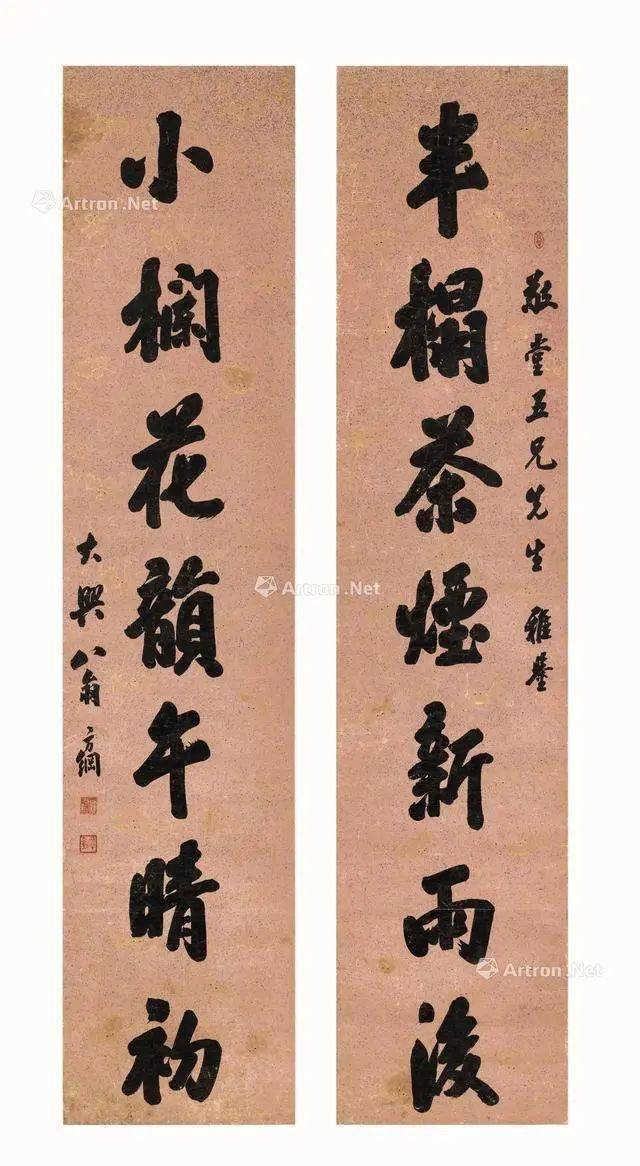 敬堂五兄先生雅鑒
半榻茶煙新雨後
小欄花韻午晴初
大興翁方綱
Artron.Net
Artron.Net
Artron.Net
Artron.Net